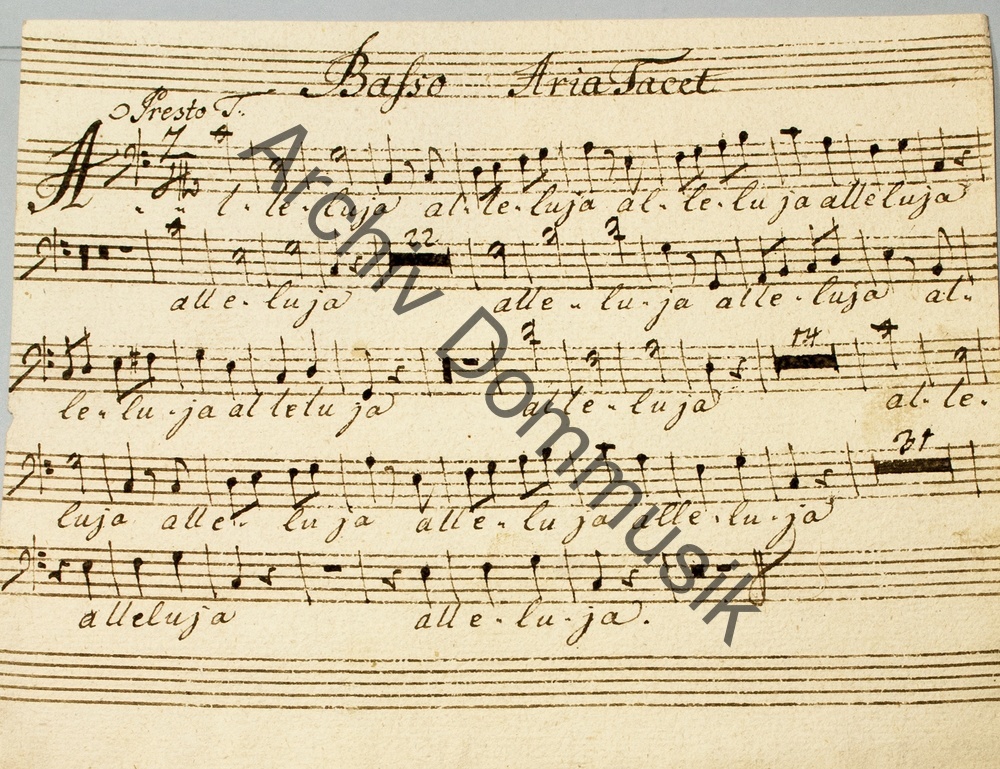 Basso Aria Tacet
Presto T.
Al- le- luja al- le- luja al- le- lu ja alleluja
22
alle- luja alle- lu- ja alle- luja al-
14
le- lu- ja alleluja alle- luja al- le-
31
luja alle- lu ja alle- lu ja alle- lu- ja
alleluja alle- lu- ja.
Archiv Dommusik